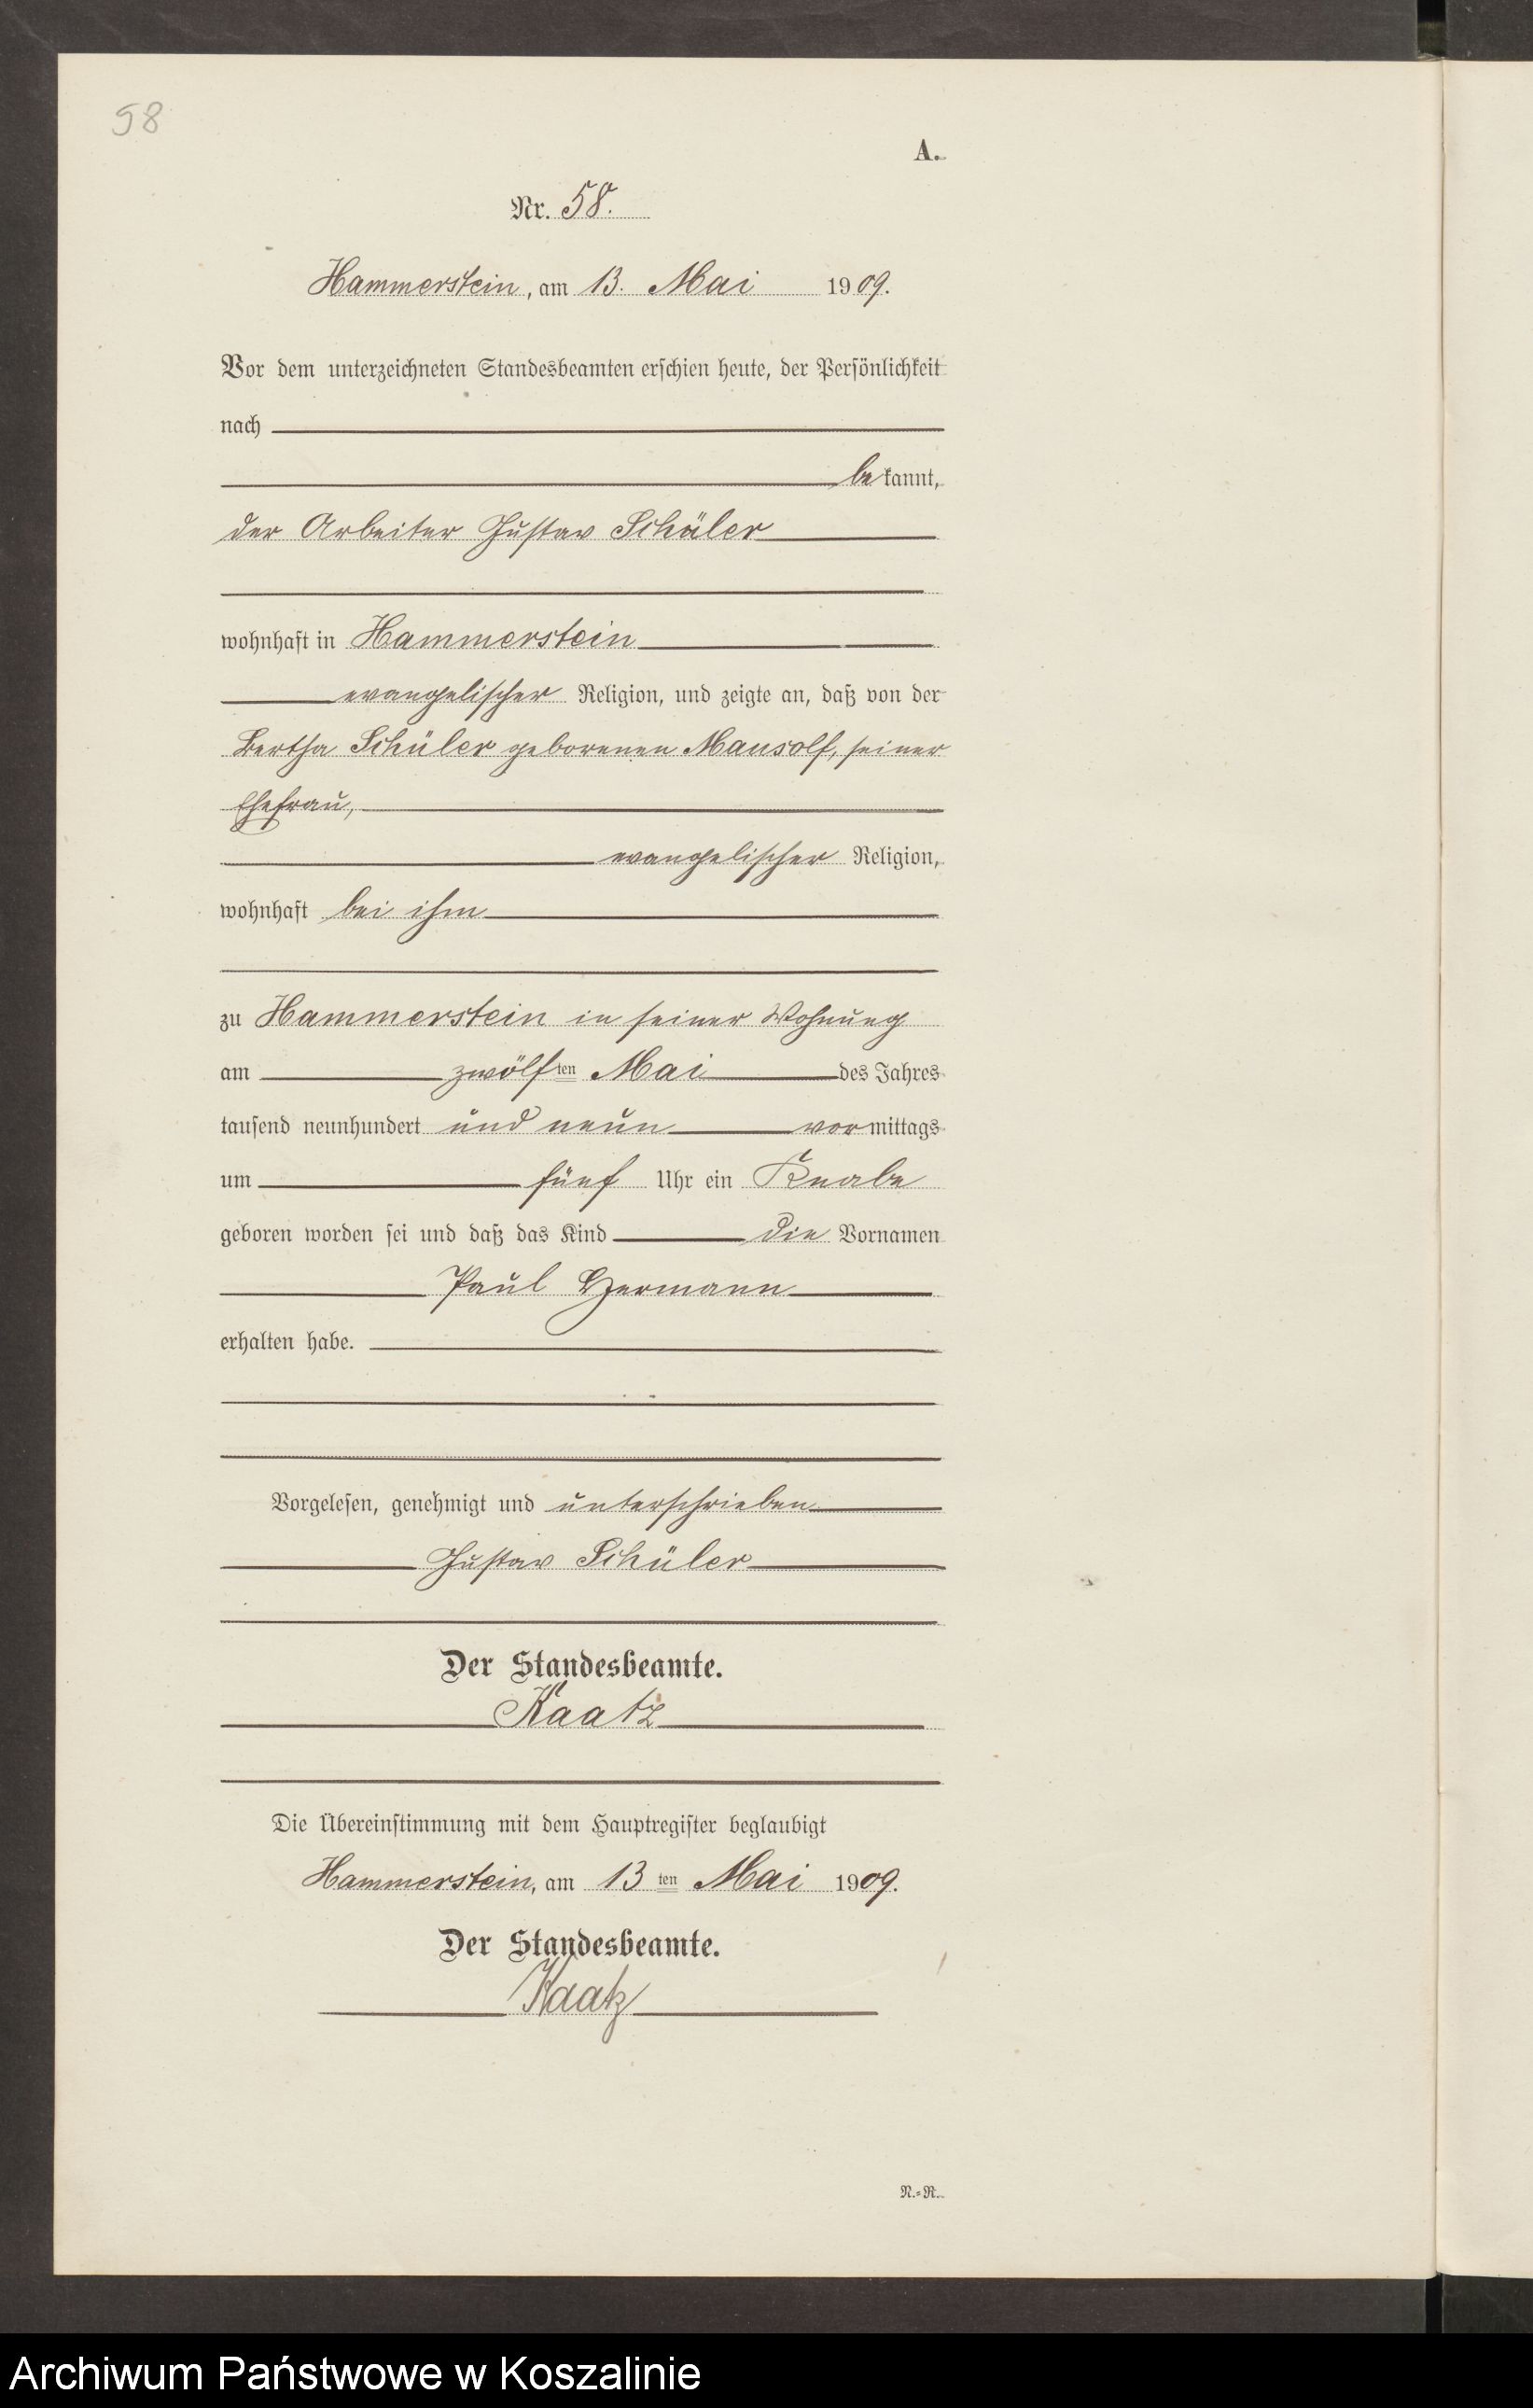 58
A.
Nr. 58.
Hammerstein, am 13. Mai 1909.
Vor dem unterzeichneten Standesbeamten erschien heute, der Persönlichkeit
nach
bekannt,
der Arbeiter Gustav Schüler
wohnhaft in Hammerstein
evangelischer Religion, und zeigte an, daß von der
Bertha Schüler geborenen Mausolf, seiner
Ehefrau,
evangelischer Religion,
wohnhaft bei ihm
zu Hammerstein in seiner Wohnung
am zwölften Mai des Jahres
tausend neunhundert und neun vormittags
um fünf Uhr ein Knabe
geboren worden sei und daß das Kind die Vornamen
Paul Hermann
erhalten habe.
Vorgelesen, genehmigt und unterschrieben
Gustav Schüler
Der Standesbeamte.
Kaatz
Die Übereinstimmung mit dem Hauptregister beglaubigt
Hammerstein, am 13ten Mai 1909.
Der Standesbeamte.
Kaatz
N.=R.
Archiwum Państwowe w Koszalinie